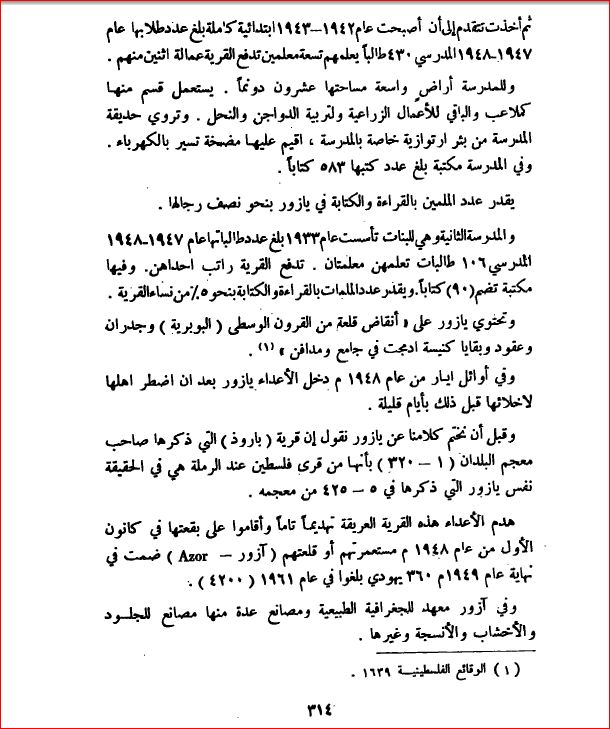 ثم أخذت تتقدم إلى أن أصبحت عام ١٩٤٢ – ١٩٤٣ ابتدائية كاملة بلغ عدد طلابها عام
١٩٤٧ – ١٩٤٨ المدرسي ٤٣٠ طالباً يعلمهم تسعة معلمين تدفع القرية عمالة اثنين منهم .
وللمدرسة أراض واسعة مساحتها عشرون دونماً . يستعمل قسم منها
كملاعب والباقي للأعمال الزراعية ولتربية الدواجن والنحل . وتروي حديقة
المدرسة من بئر ارتوازية خاصة بالمدرسة ، اقيم عليها مضخة تسير بالكهرباء .
وفي المدرسة مكتبة بلغ عدد كتبها ٥٨٣ كتاباً .
يقدر عدد الملمين بالقراءة والكتابة في يازور بنحو نصف رجالها .
والمدرسة الثانية وهي للبنات تأسست عام ١٩٣٣ بلغ عدد طالباتها عام ١٩٤٧ – ١٩٤٨
المدرسي ١٠٦ طالبات تعلمهن معلمتان . تدفع القرية راتب احداهن . وفيها
مكتبة تضم (٩٠) كتاباً . ويقدر عدد الملمات بالقراءة والكتابة بنحو ٥٪ من نساء القرية .
وتحتوي يازور على « أنقاض قلعة من القرون الوسطى ( البوبرية ) وجدران
وعقود وبقايا كنيسة ادمجت في جامع ومدافن » (١) .
وفي أوائل ايار من عام ١٩٤٨ م دخل الأعداء يازور بعد ان اضطر اهلها
لاخلائها قبل ذلك بأيام قليلة .
وقبل أن نختم كلامنا عن يازور نقول إن قرية ( باروذ ) التي ذكرها صاحب
معجم البلدان ( ١ – ٣٢٠ ) بأنها من قرى فلسطين عند الرملة هي في الحقيقة
نفس يازور التي ذكرها في ٥ – ٤٢٥ من معجمه .
هدم الأعداء هذه القرية العريقة تهديماً تاماً وأقاموا على بقعتها في كانون
الأول من عام ١٩٤٨ م مستعمرتهم أو قلعتهم ( آزور – Azor ) ضمت في
نهاية عام ١٩٤٩م ٣٦٠ يهودي بلغوا في عام ١٩٦١ ( ٤٢٠٠ ) .
وفي آزور معهد للجغرافية الطبيعية ومصانع عدة منها مصانع للجلود
والأخشاب والأنسجة وغيرها .
( ١ ) الوقائع الفلسطينية ١٦٣٩ .
٣١٤